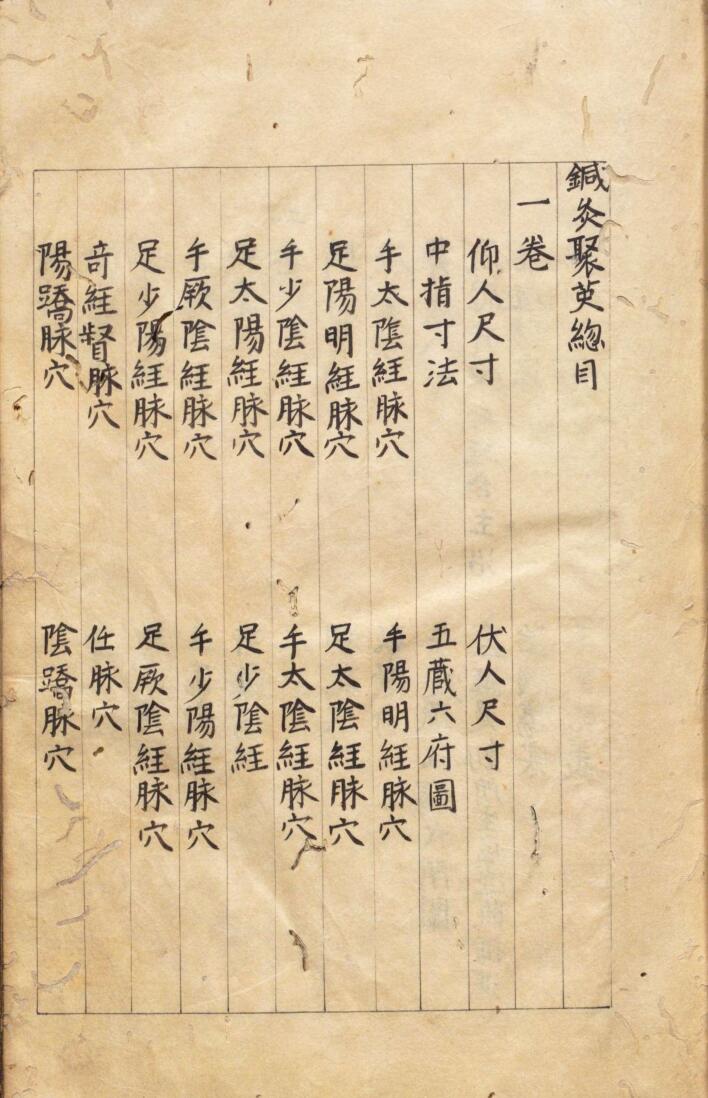 鍼灸聚英總目
一卷
仰人尺寸　伏人尺寸
中指寸法　五蔵六府圖
手太陰經脉穴　手陽明經脉穴
足陽明經脉穴　足太陰經脉穴
手少陰經脉穴　手太陰經脉穴
足太陽經脉穴　足少陰經
手厥陰經脉穴　手少陽經脉穴
足少陽經脉穴　足厥陰經脉穴
竒經督脉穴　任脉穴
陽蹻脉穴　陰蹻脉穴